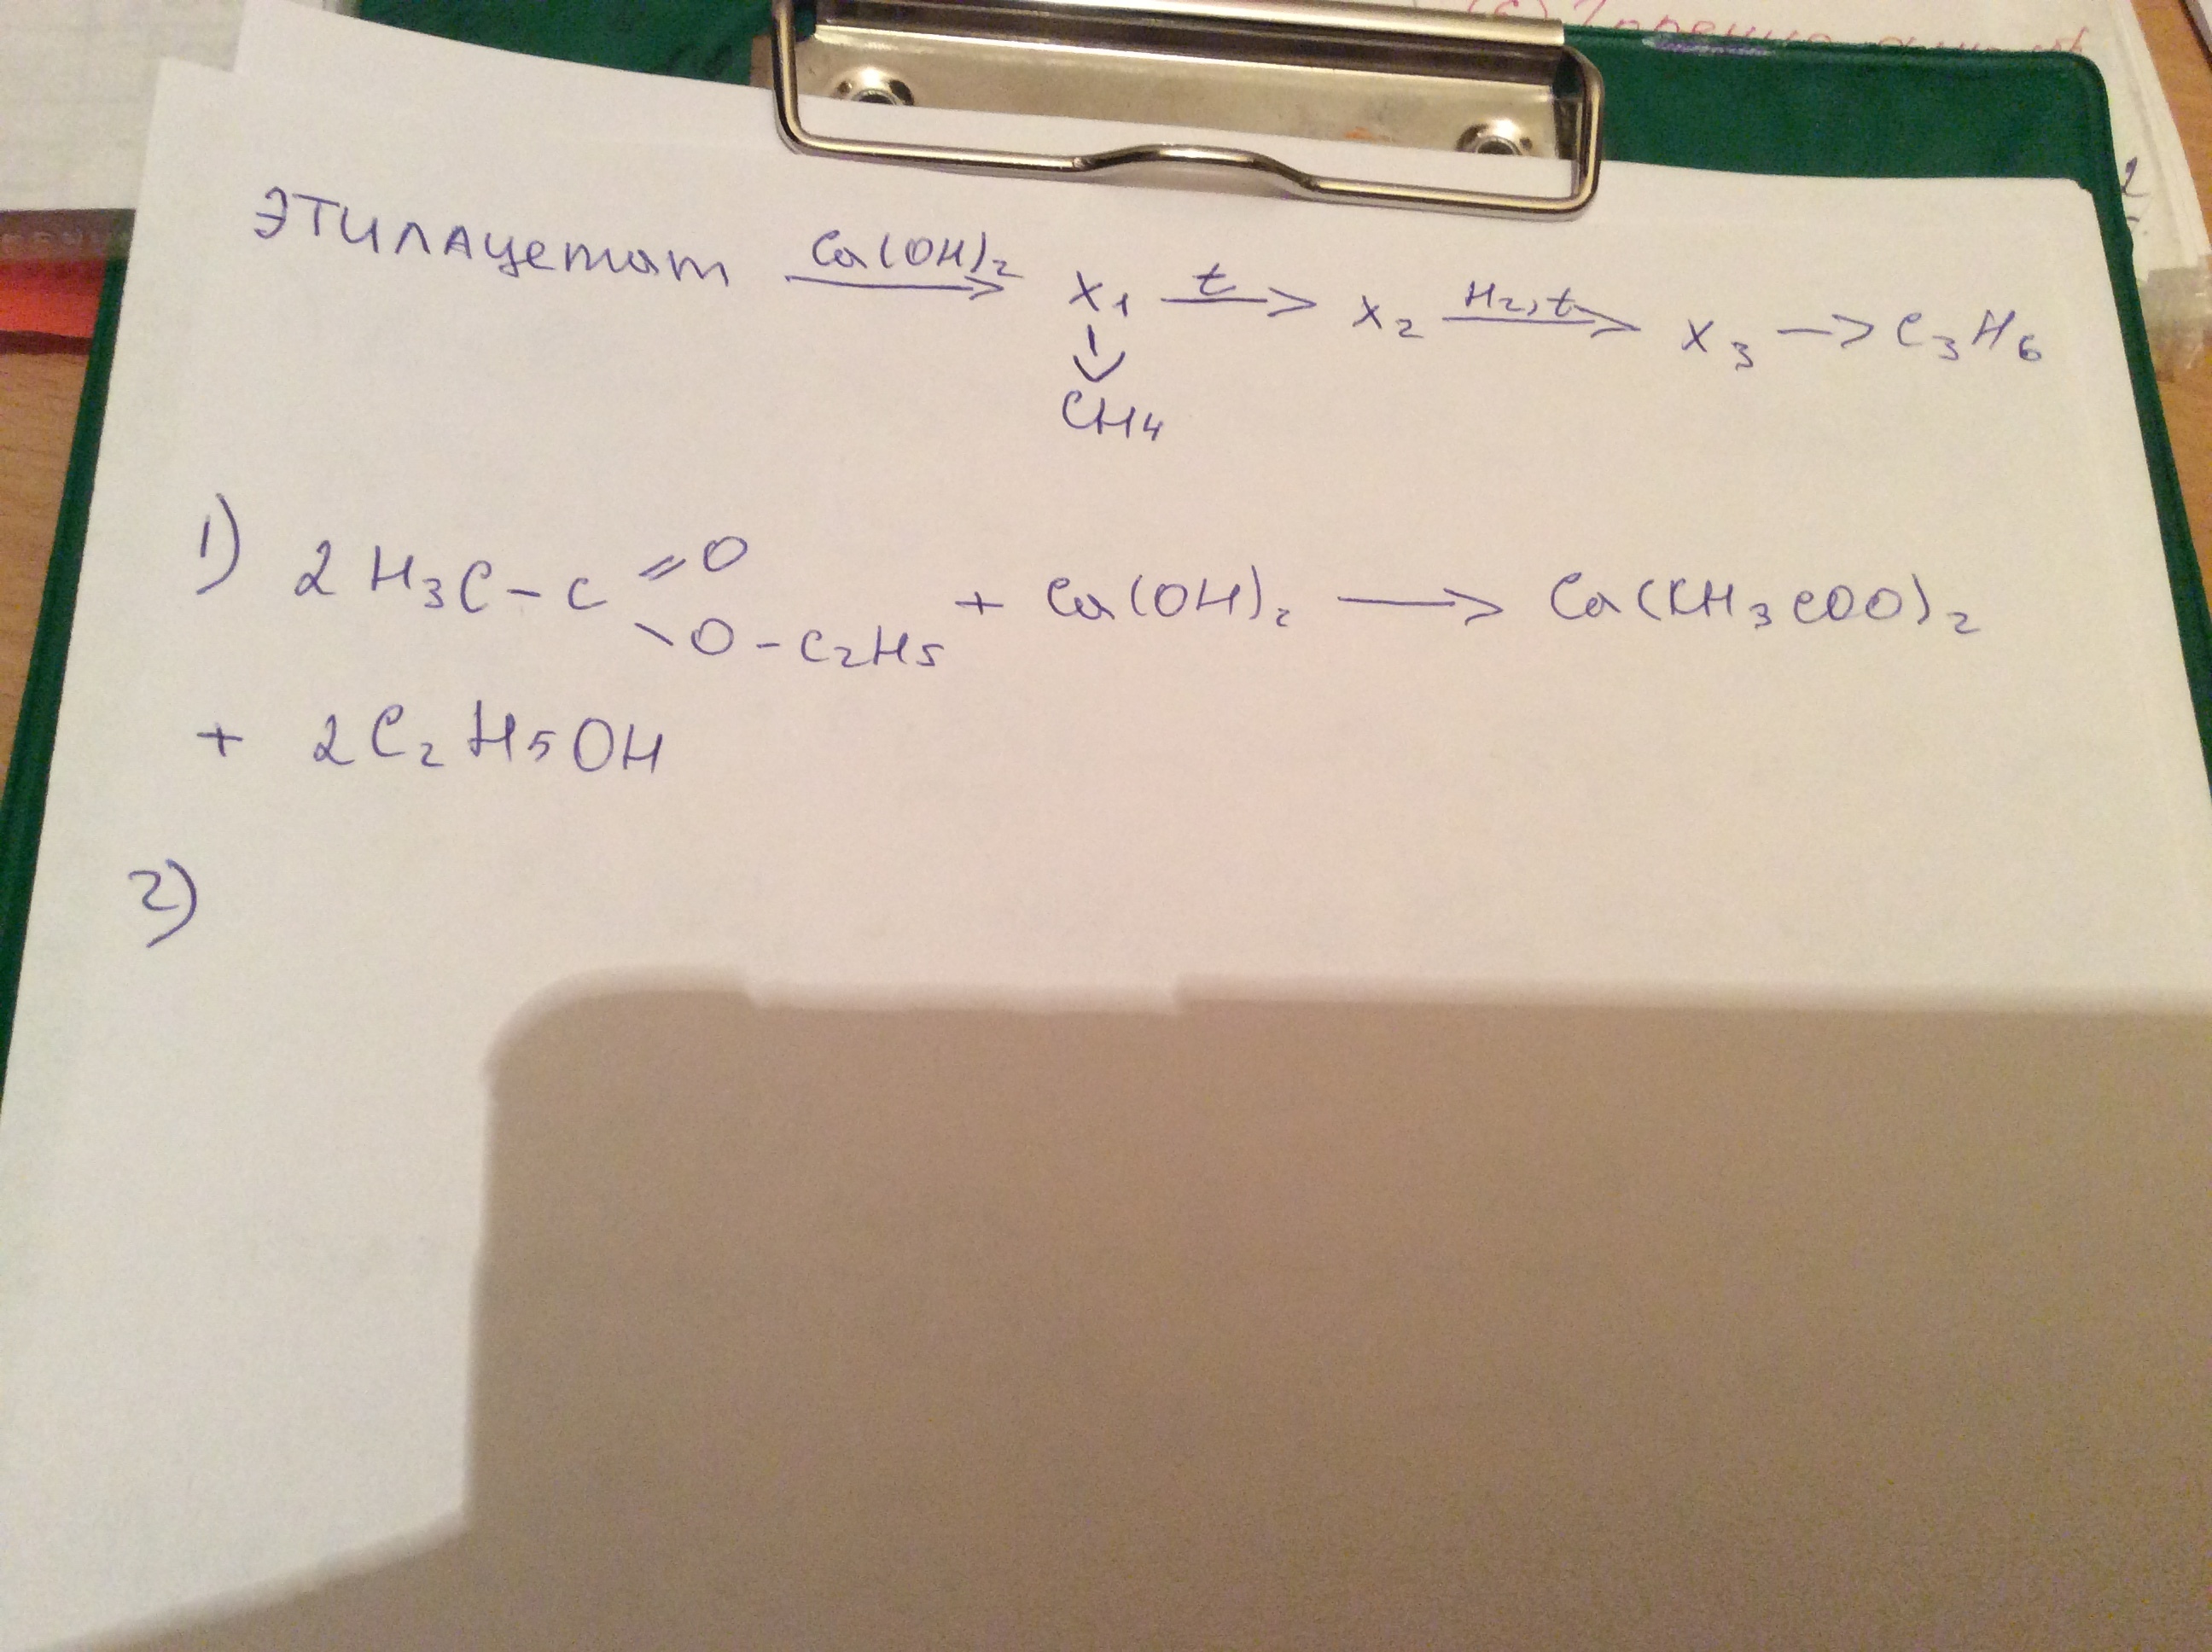 этилацетат Ca(OH)₂ → X₁ t → X₂ H₂, t → X₃ → C₃H₆
↓
CH₄
1) 2 H₃C – C =O \O – C₂H₅ + Ca(OH)₂ → Ca(CH₃COO)₂
+ 2C₂H₅OH
2)